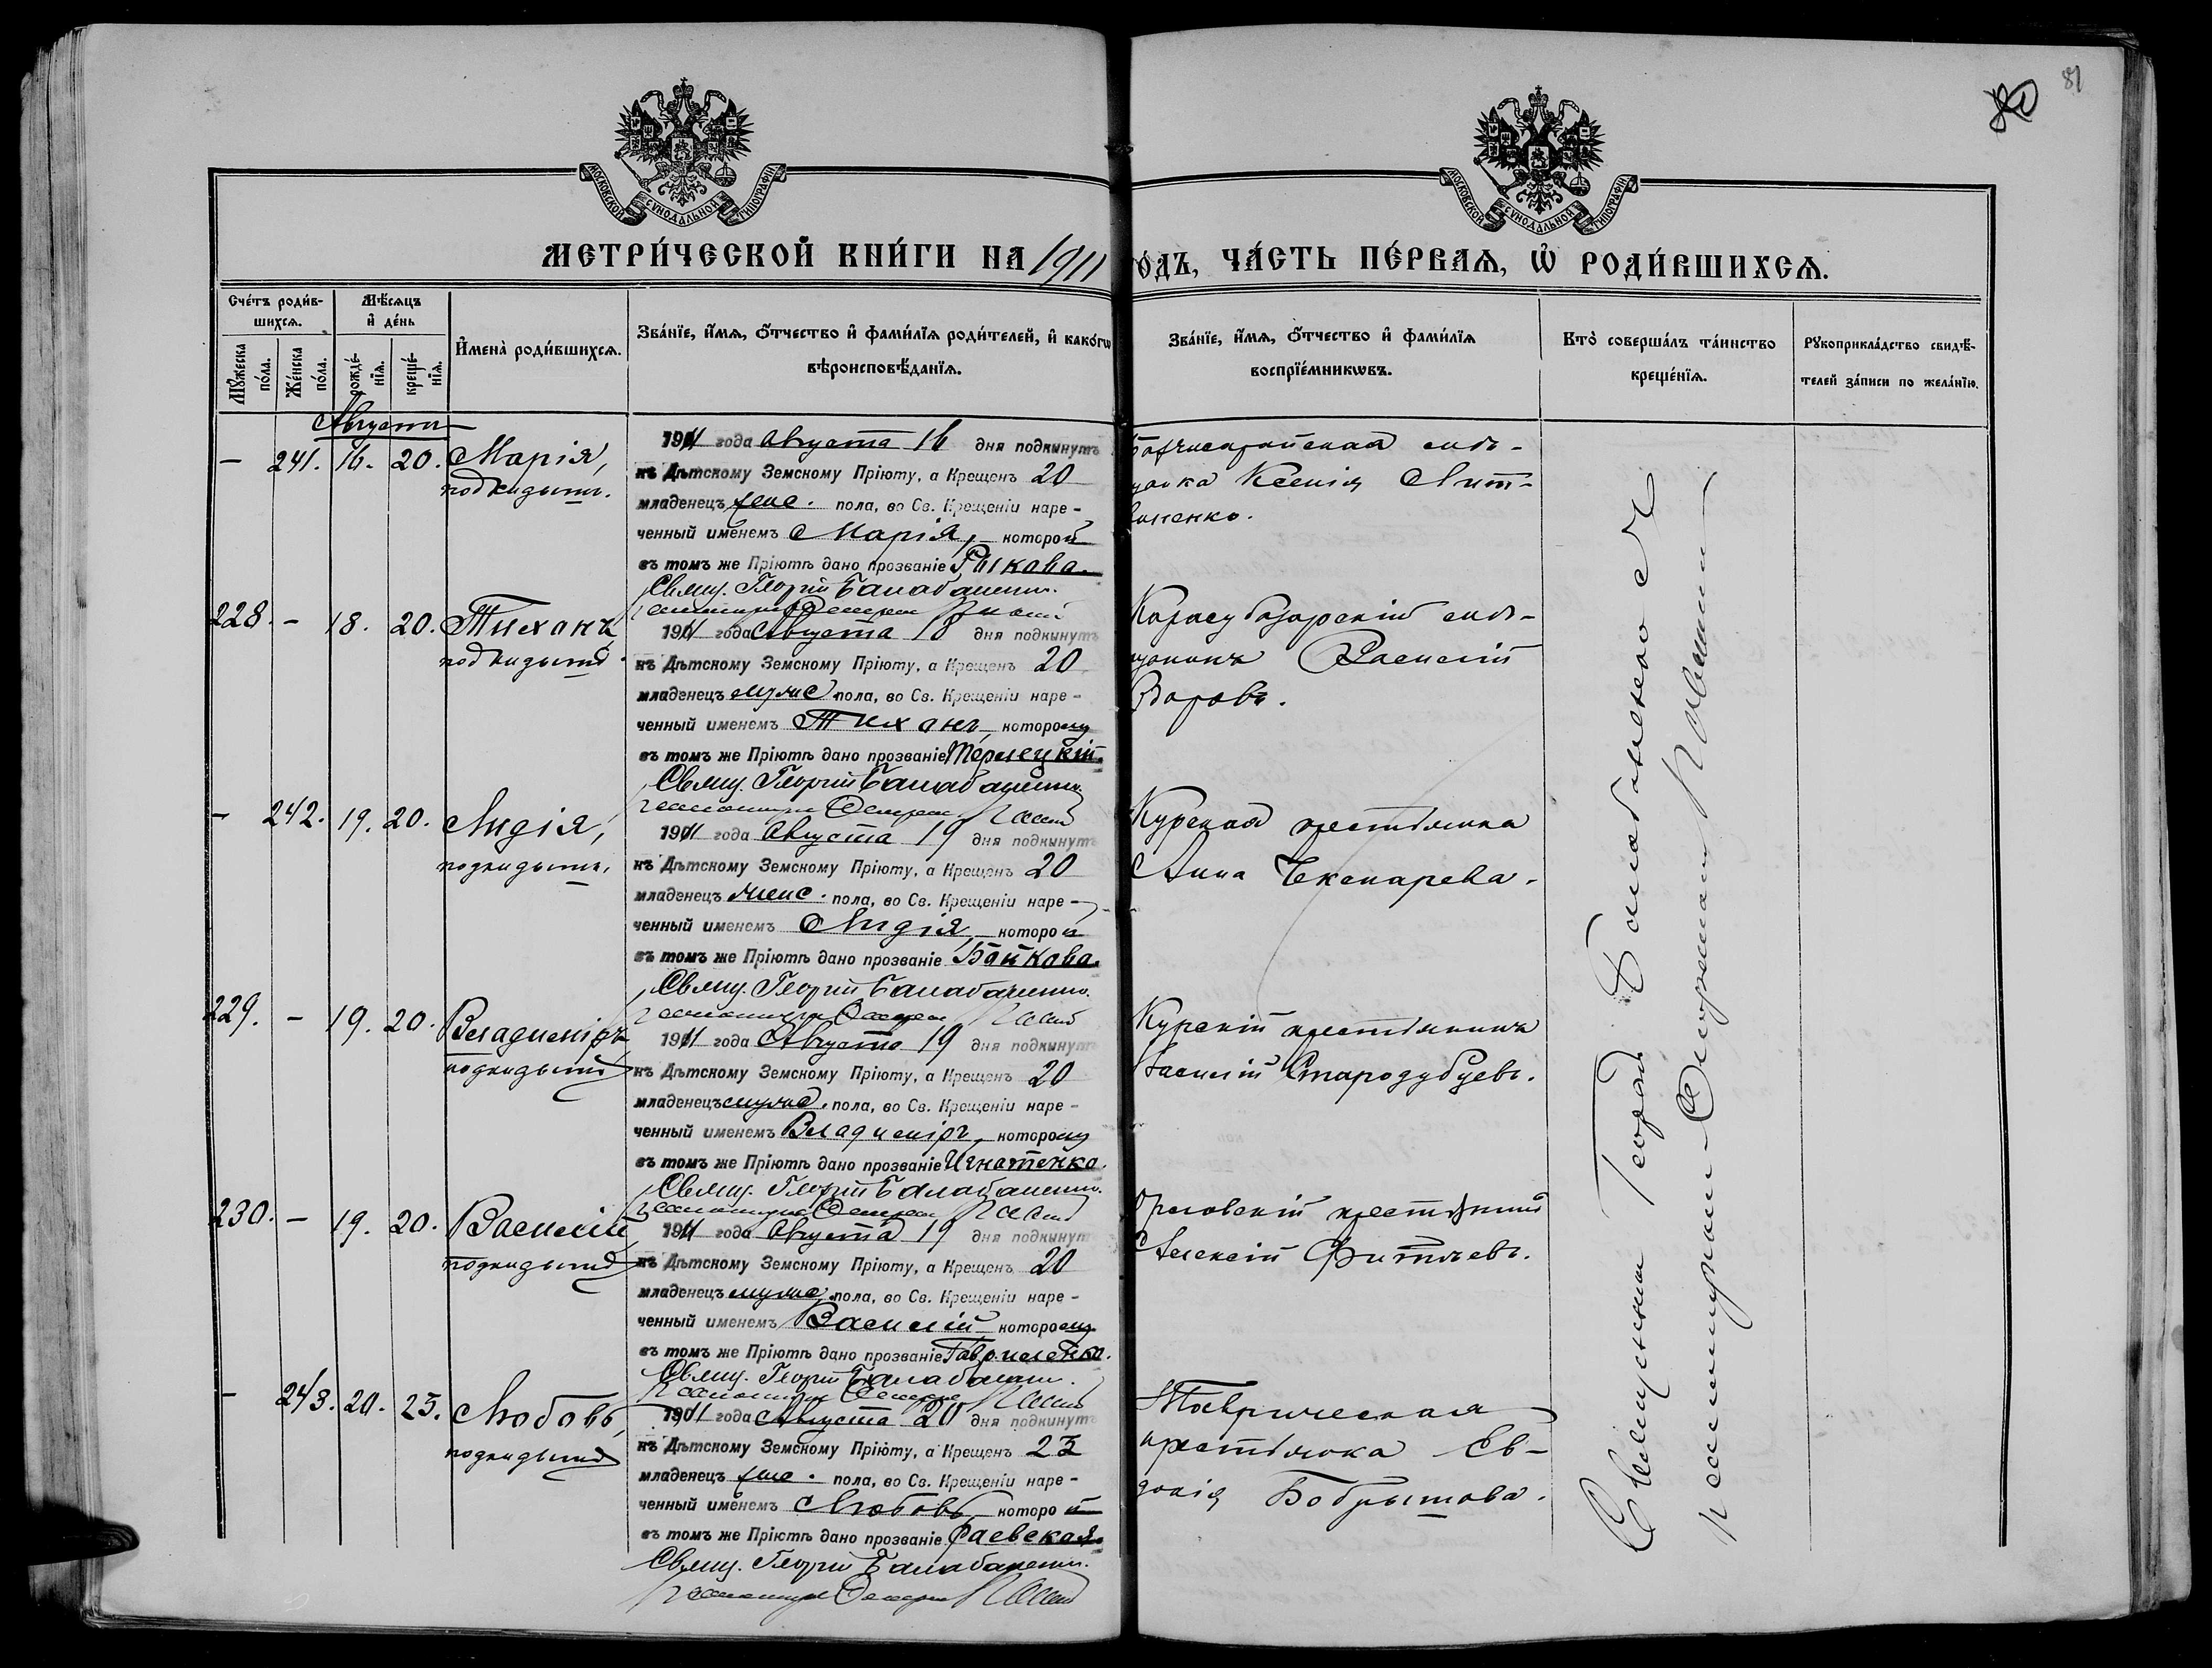 81
МОСКОВСКОЙ СѴНОДАЛЬНОЙ ТИПОГРАФІИ
МОСКОВСКОЙ СѴНОДАЛЬНОЙ ТИПОГРАФІИ
МЕТРИ́ЧЕСКОЙ КНИ́ГИ НА 1911
О́ДЪ, ЧА́СТЬ ПЕ́РВАѦ, Ѡ҆ РОДИ́ВШИХСѦ.
Сче́тъ роди́в-
шихсѧ.
Мѣ́сѧцъ
и҆ де́нь
Мꙋ́жеска по́ла.
Же́нска по́ла.
рожде́-
нїѧ.
креще́-
нїѧ.
И҆мена̀ роди́вшихсѧ.
Зва́нїе, и҆́мѧ, ѻ҆́тчество и҆ фами́лїѧ роди́телей, и҆ како́гѡ
вѣроисповѣ́данїѧ.
Зва́нїе, и҆́мѧ, ѻ҆́тчество и҆ фами́лїѧ
воспрїе́мникѡвъ.
Кто̀ соверша́лъ та́инство
креще́нїѧ.
Рꙋкоприкла́дство свидѣ́-
телей за́писи по жела́нїю.
Августъ
— 241. 16. 20. Марія,
подкидышъ.
1911 года Августа 16 дня подкинутъ
къ Дѣтскому Земскому Пріюту, а Крещенъ 20
младенецъ жене. пола, во Св. Крещеніи наре-
ченный именемъ Марія, которой
въ томъ же Пріютѣ дано прозваніе Рыкова.
Свящ. Георгій Балабаненко.
Ксенія Лит-
виненко.
228. — 18. 20. Тихонъ
подкидышъ.
1911 года Августа 18 дня подкинутъ
къ Дѣтскому Земскому Пріюту, а Крещенъ 20
младенецъ мужс. пола, во Св. Крещеніи наре-
ченный именемъ Тихонъ, которому
въ томъ же Пріютѣ дано прозваніе Терлецкій.
Свящ. Георгій Балабаненко.
Карасубазарскій мѣ-
щанинъ Василій
— 242. 19. 20. Лидія,
подкидышъ.
1911 года Августа 19 дня подкинутъ
къ Дѣтскому Земскому Пріюту, а Крещенъ 20
младенецъ женс. пола, во Св. Крещеніи наре-
ченный именемъ Лидія, которой
въ томъ же Пріютѣ дано прозваніе Байкова.
Свящ. Георгій Балабаненко.
Курская крестьянка
Анна Чекмарева.
229. — 19. 20. Владиміръ
подкидышъ
1911 года Августа 19 дня подкинутъ
къ Дѣтскому Земскому Пріюту, а Крещенъ 20
младенецъ мужс. пола, во Св. Крещеніи наре-
ченный именемъ Владиміръ, которому
въ томъ же Пріютѣ дано прозваніе Игнатенко.
Свящ. Георгій Балабаненко.
Курскій крестьянинъ
Василій Стародубцевъ.
230. — 19. 20. Василій
подкидышъ
1911 года Августа 19 дня подкинутъ
къ Дѣтскому Земскому Пріюту, а Крещенъ 20
младенецъ мужс. пола, во Св. Крещеніи наре-
ченный именемъ Василій, которому
въ томъ же Пріютѣ дано прозваніе Гавриленко.
Свящ. Георгій Балабаненко.
Орловскій крестьянинъ
Алексій Фитисевъ.
— 243. 20. 23. Любовь,
подкидышъ
1911 года Августа 20 дня подкинутъ
къ Дѣтскому Земскому Пріюту, а Крещенъ 23
младенецъ жене. пола, во Св. Крещеніи наре-
ченный именемъ Любовь, которой
въ томъ же Пріютѣ дано прозваніе Раевская.
Свящ. Георгій Балабаненко.
Таврическая
крестьянка Ев-
докія Бобрышова.
Священникъ Георгій Балабаненко съ
псаломщикомъ